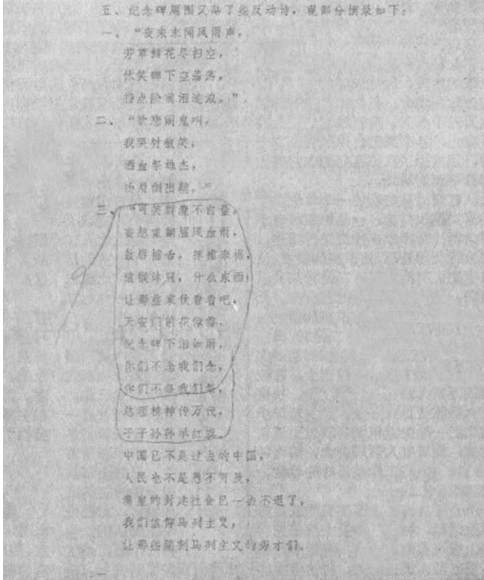 五、纪念碑周围又贴了些反动诗,现部分摘录如下:
一、“夜来未闻风雨声,
芳草鲜花尽扫空,
伏 碑下空荡荡,
阶前泪 。”
二、“欲悲闻鬼叫,
我哭豺狼笑,
洒血祭雄杰,
扬眉剑出鞘。”
三、“可笑群魔不自量,
妄想掀翻腥风血雨,
鼓唇摇舌,
什么东西!
让那些家伙看看吧,
天安门前花似雪,
纪念碑下泪如雨,
你们不 我们念,
你们不祭我们祭,
总理精神传万代,
子子孙孙举红旗。
中国已不是过去的中国,
人民也不是愚不可及,
秦皇的封建社会已一去不返了,
我们信仰马列主义,
让那些阉割马列主义的秀才们,